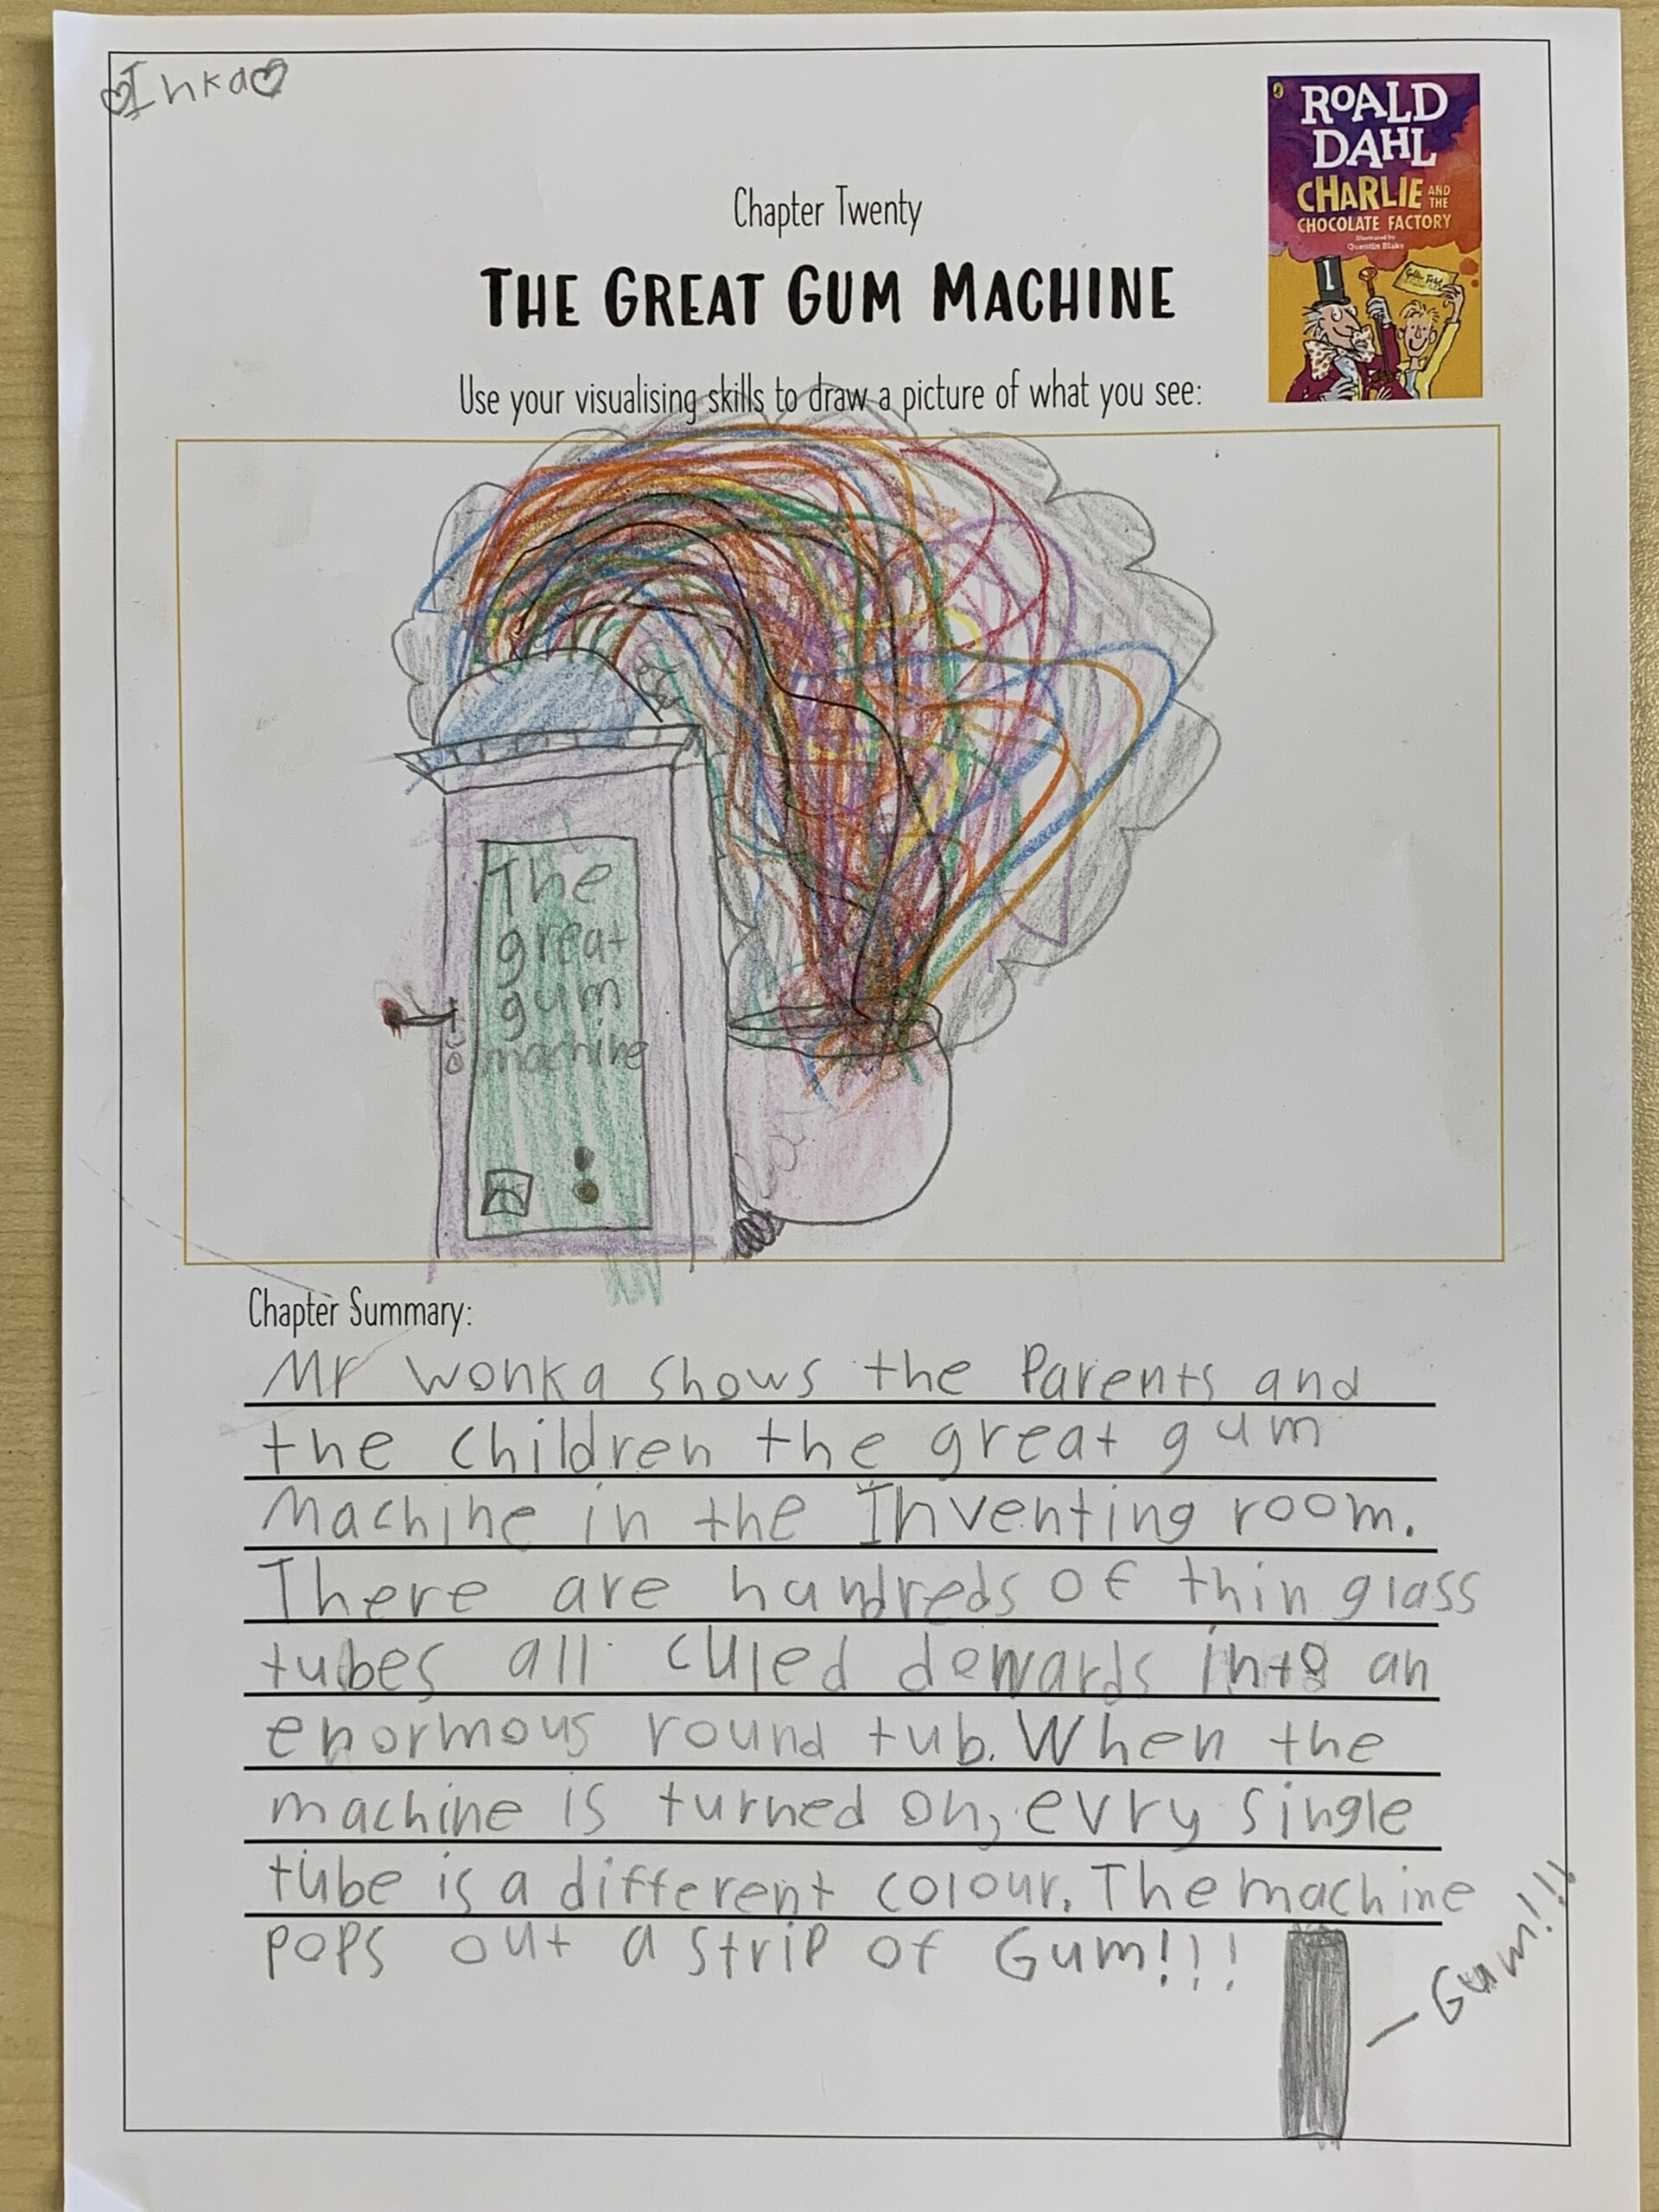 ♡Inka♡
ROALD
DAHL
CHARLIE AND THE
CHOCOLATE FACTORY
Illustrated by
Quentin Blake
Golden Ticket
Chapter Twenty
THE GREAT GUM MACHINE
Use your visualising skills to draw a picture of what you see:
The
great
gum
machine
Chapter Summary:
Mr wonka shows the Parents and
the children the great gum
Machine in the Inventing room.
There are hundreds of thin glass
tubes all culed dowards into an
enormous round tub. When the
machine is turned on, evry single
tube is a different colour. The machine
pops out a strip of Gum!!!
Gum!!!